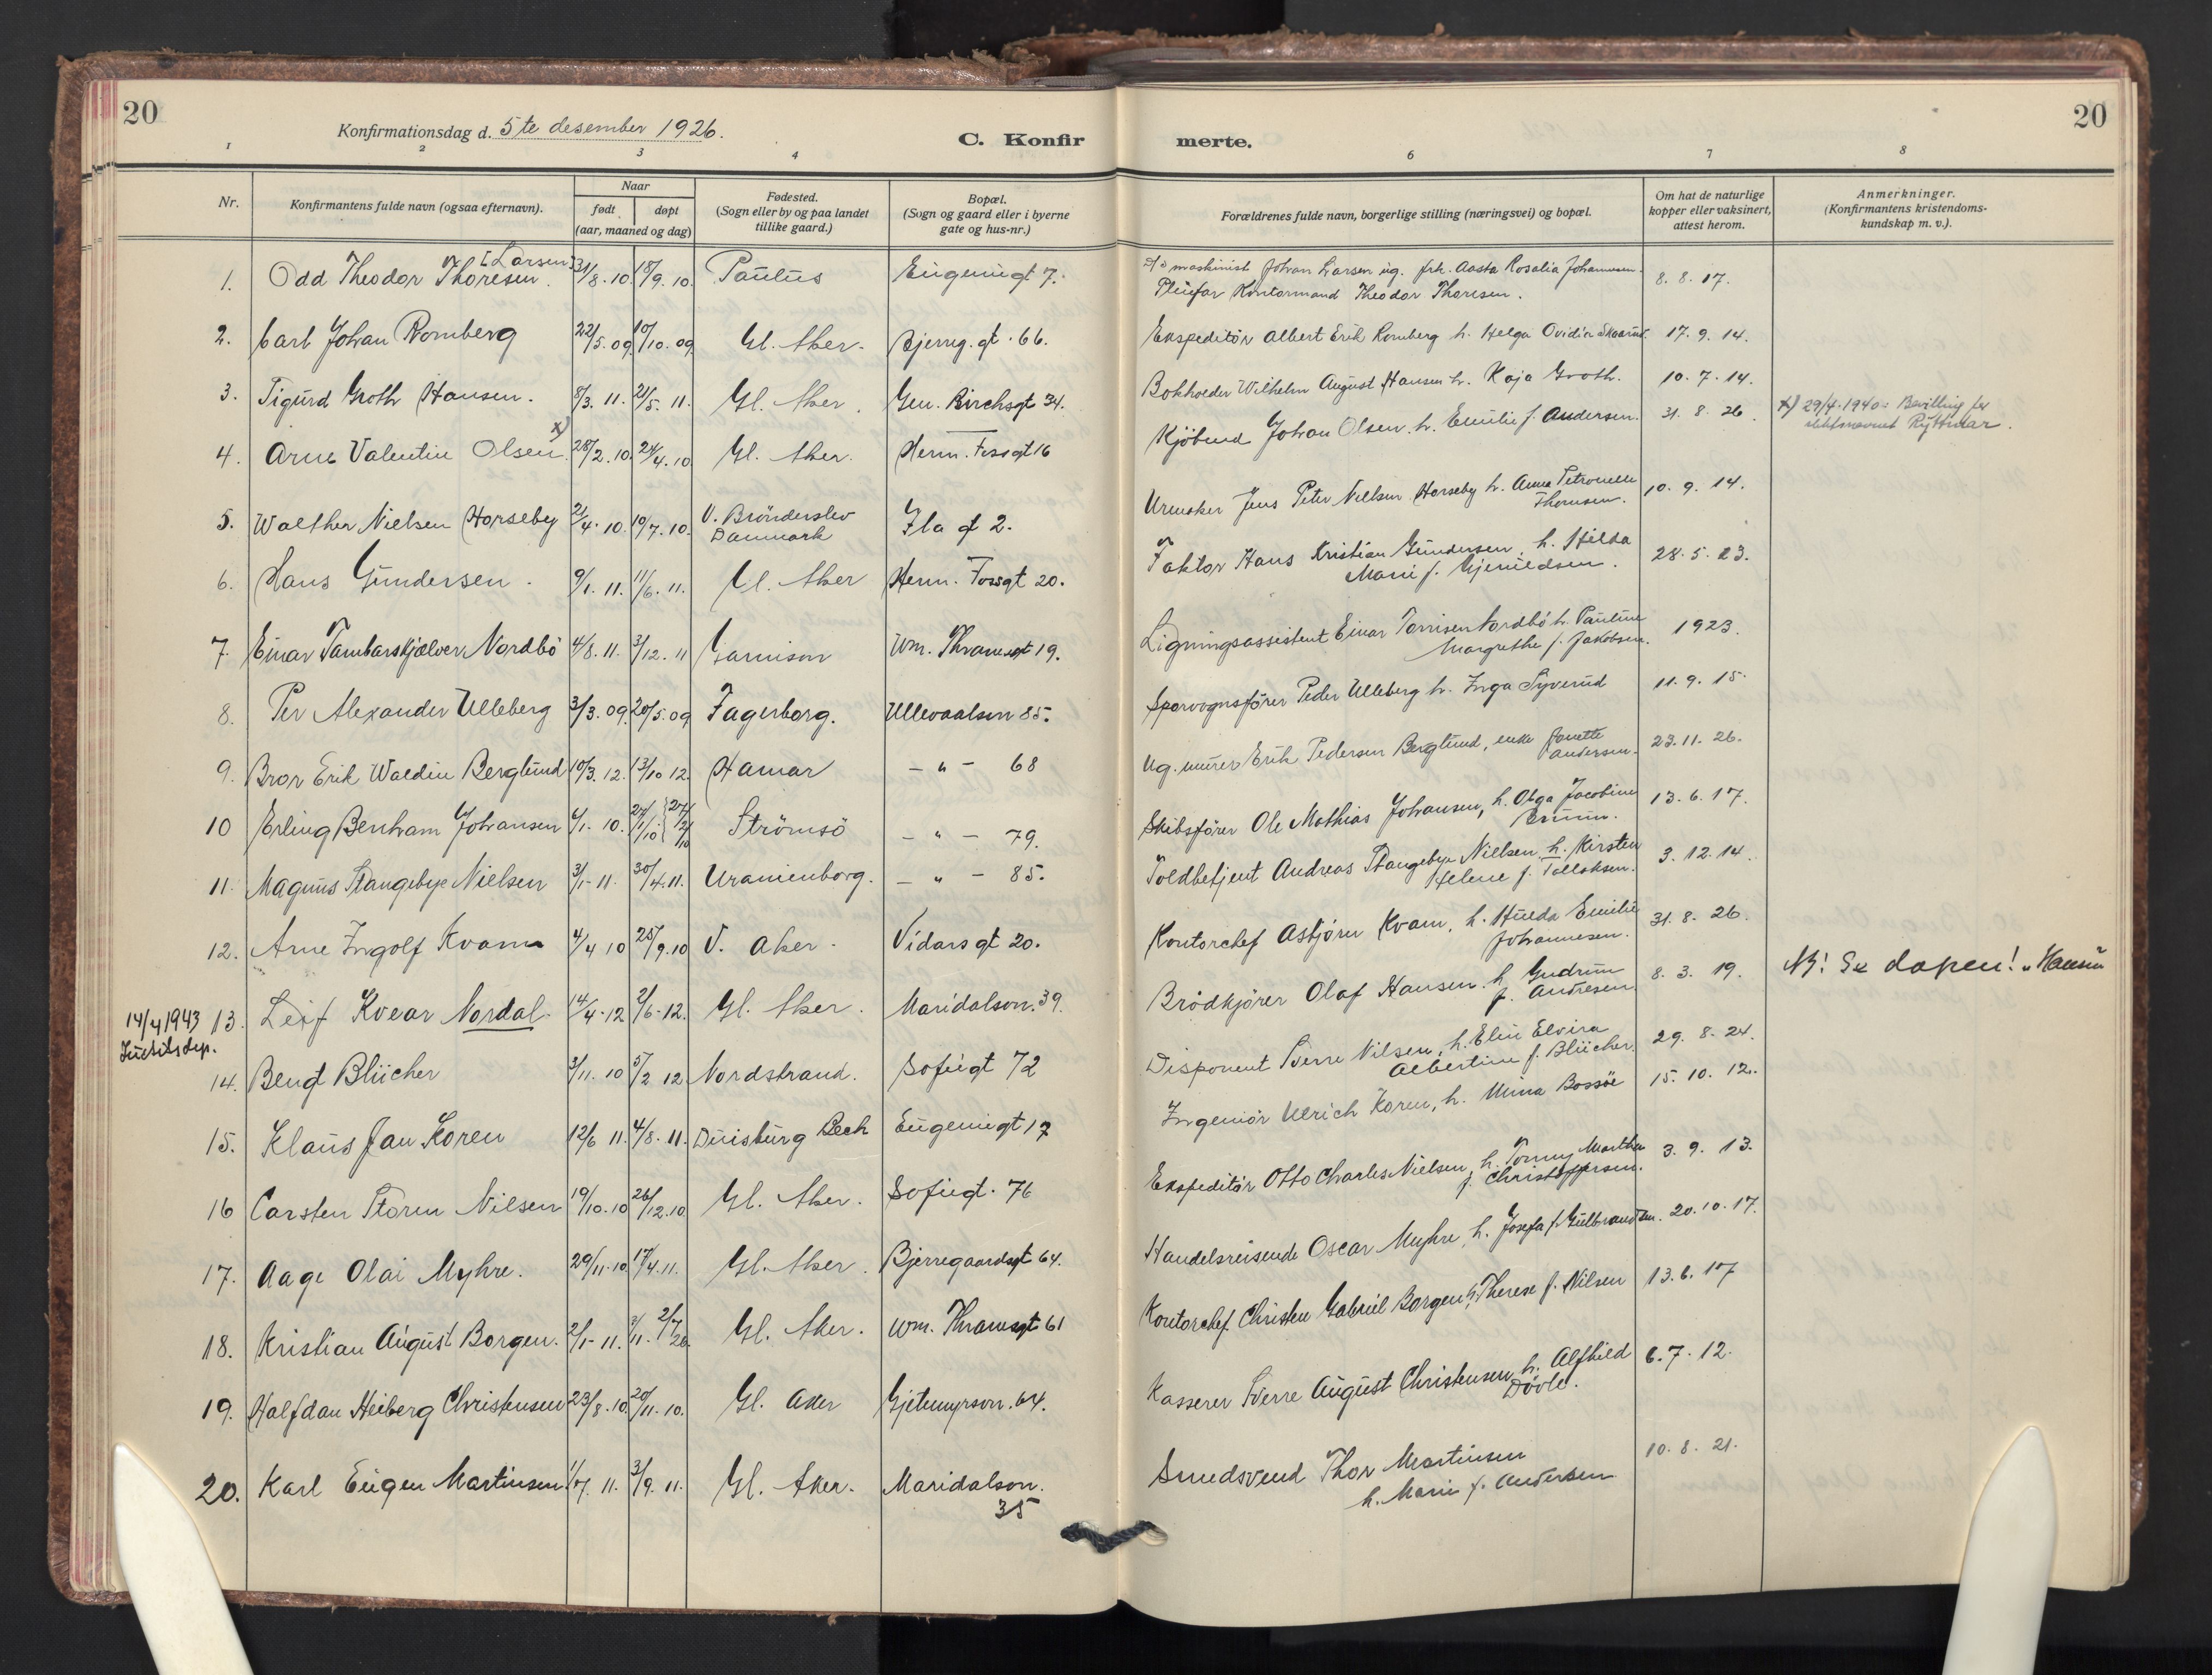 20
Konfirmationsdag d. 5te desember 1926.
C. Konfirmerte.
20
1 2 3 4 6 7 8
Nr.
Konfirmantens fulde navn (ogsaa efternavn).
Naar
født døpt
(aar, maaned og dag)
Fødested.
(Sogn eller by og paa landet
tillike gaard.)
Bopæl.
(Sogn og gaard eller i byerne
gate og hus-nr.)
Forældrenes fulde navn, borgerlige stilling (næringsvei) og bopæl.
Om hat de naturlige
kopper eller vaksinert,
attest herom.
Anmerkninger.
(Konfirmantens kristendoms-
kundskap m. v.).
[Larsen]
1. Odd Theodor Thoresen. 31/8. 10. 18/9. 10. Paulus Eugeniigt 7. maskinist Johan Larsen ug. frk. Aasta Rosalia Johannesen. 8. 8. 17.
Pleiefar Kontormand Theodor Thoresen.
2. Carl Johan Romberg 22/5. 09. 10/10. 09. Gl. Aker. Bjerreg. gt. 66. Ekspeditör Albert Erik Romberg h. Helga Ovidia Skaarud. 17. 9. 14.
3. Sigurd Groth Hansen. 8/3. 11. 21/5. 11. Gl. Aker. Gen. Birchsgt 34. Bokholder Wilhelm August Hansen h. Kaja Groth. 10. 7. 14.
4. Arne Valentin Olsen x) 28/2. 10. 24/4. 10. Gl. Aker. Herm. Fossgt 16 Kjöbmd Johan Olsen h. Emilie f. Andersen. 31. 8. 26. x) 29/4-1940: Bevilling for
slektsnavnet Ryttmar.
5. Walther Nielsen Horseby 2/4. 10. 10/7. 10. V. Brönderslev
Danmark
Ila gt 2. Urmaker Jens Peter Nielsen Horseby h. Anna Petronelle
Thomsen. 10. 9. 14.
6. Hans Gundersen. 9/1. 11. 11/6. 11. Gl. Aker Herm. Fossgt 20. Faktor Hans Kristian Gundersen, h. Hilda
Marie f. Gjeruldsen. 28. 5. 23.
7. Einar Tambarskjælver Nordbö 4/8. 11. 3/12. 11 Garnison Wm. Thranesgt 19. Ligningsassistent Einar Tönnisen Nordbö h. Pauline
Margrethe f. Jakobsen. 1923.
8. Per Alexander Ulleberg 3/3. 09. 20/5. 09 Fagerborg. Ullevaalsvn 85. Sporvognsförer Peder Ulleberg h. Inga Syverud 11. 9. 15.
9. Bror Erik Waldin Berglund 10/3. 12. 13/10 12. Hamar - " - 68 Ug. murer Erik Pedersen Berglund, enke Janette
Andersen. 23. 11. 26.
10 Erling Benham Johansen 6/1. 10. Strömsö - " - 79. Skibsförer Ole Mathias Johansen, h. Olga Jacobine
13. 6. 17.
11. Magnus Stangebye Nielsen 3/1- 11. 30/4. 11. Uranienborg. - " - 85. Toldbetjent Andreas Stangebye Nielsen h. Kirsten
Helene f. Tollaksen. 3. 12. 14.
12. Arne Ingolf Kvam 4/4 10 25/9. 10 V. Aker. Vidars gt 20. Kontorchef Asbjörn Kvam, h. Hulda Emilie
Johannesen. 31. 8. 26.
13. Leif Kvear Nordal. 14/4-12 2/6-12. Gl. Aker. Maridalsvn. 39. Brödkjörer Olaf Hansen h. Gudrun
f. Andresen. 8. 3. 19. NB! Se dåpen! "Hansen"
14/4 1943
Justitsdep.
14. Bengt Blücher 3/11. 10 5/2 12 Nordstrand. Sofiegt 72 Disponent Sverre Nilsen, h. Elin Elvira
Albertine f. Blücher. 29. 8. 24.
15. Klaus Jan Koren 12/6 11. 4/8. 11. Duisburg Beck Eugeniigt 17 Ingeniör Ulrich Koren, h. Mina Bossöe 15. 10. 12.
16 Carsten Storm Nilsen 19/10. 10 26/12. 10. Gl. Aker. Sofiegt. 76 Ekspeditör Otto Charles Nielsen, h. Tonny Marthea
f. Christoffersen. 3. 9. 13.
17. Aage Olai Myhre. 29/11. 10. 17/4. 11. Gl. Aker. Bjerregaardsgt 64. Handelsreisende Oscar Myhre, h. Josefa f. Gulbrandsen. 20. 10. 17.
18. Kristian August Borgen. 2/1- 11. Gl. Aker. Wm. Thranesgt 61 Kontorchef Christen Gabriel Borgen h. Therese f. Nilsen 13. 6. 17
19. Halfdan Heiberg Christensen 23/8. 10. 20/11. 10. Gl. Aker Gjetemyrsvn. 64. Kasserer Sverre August Christensen h. Alfhild
Dövle. 6. 7. 12.
20. Karl Eugen Martinsen 1/7. 11. 3/9. 11. Gl. Aker. Maridalsvn.
35
Smedsvend Thor Martinsen
h. Marie f. Andersen 10. 8. 21.